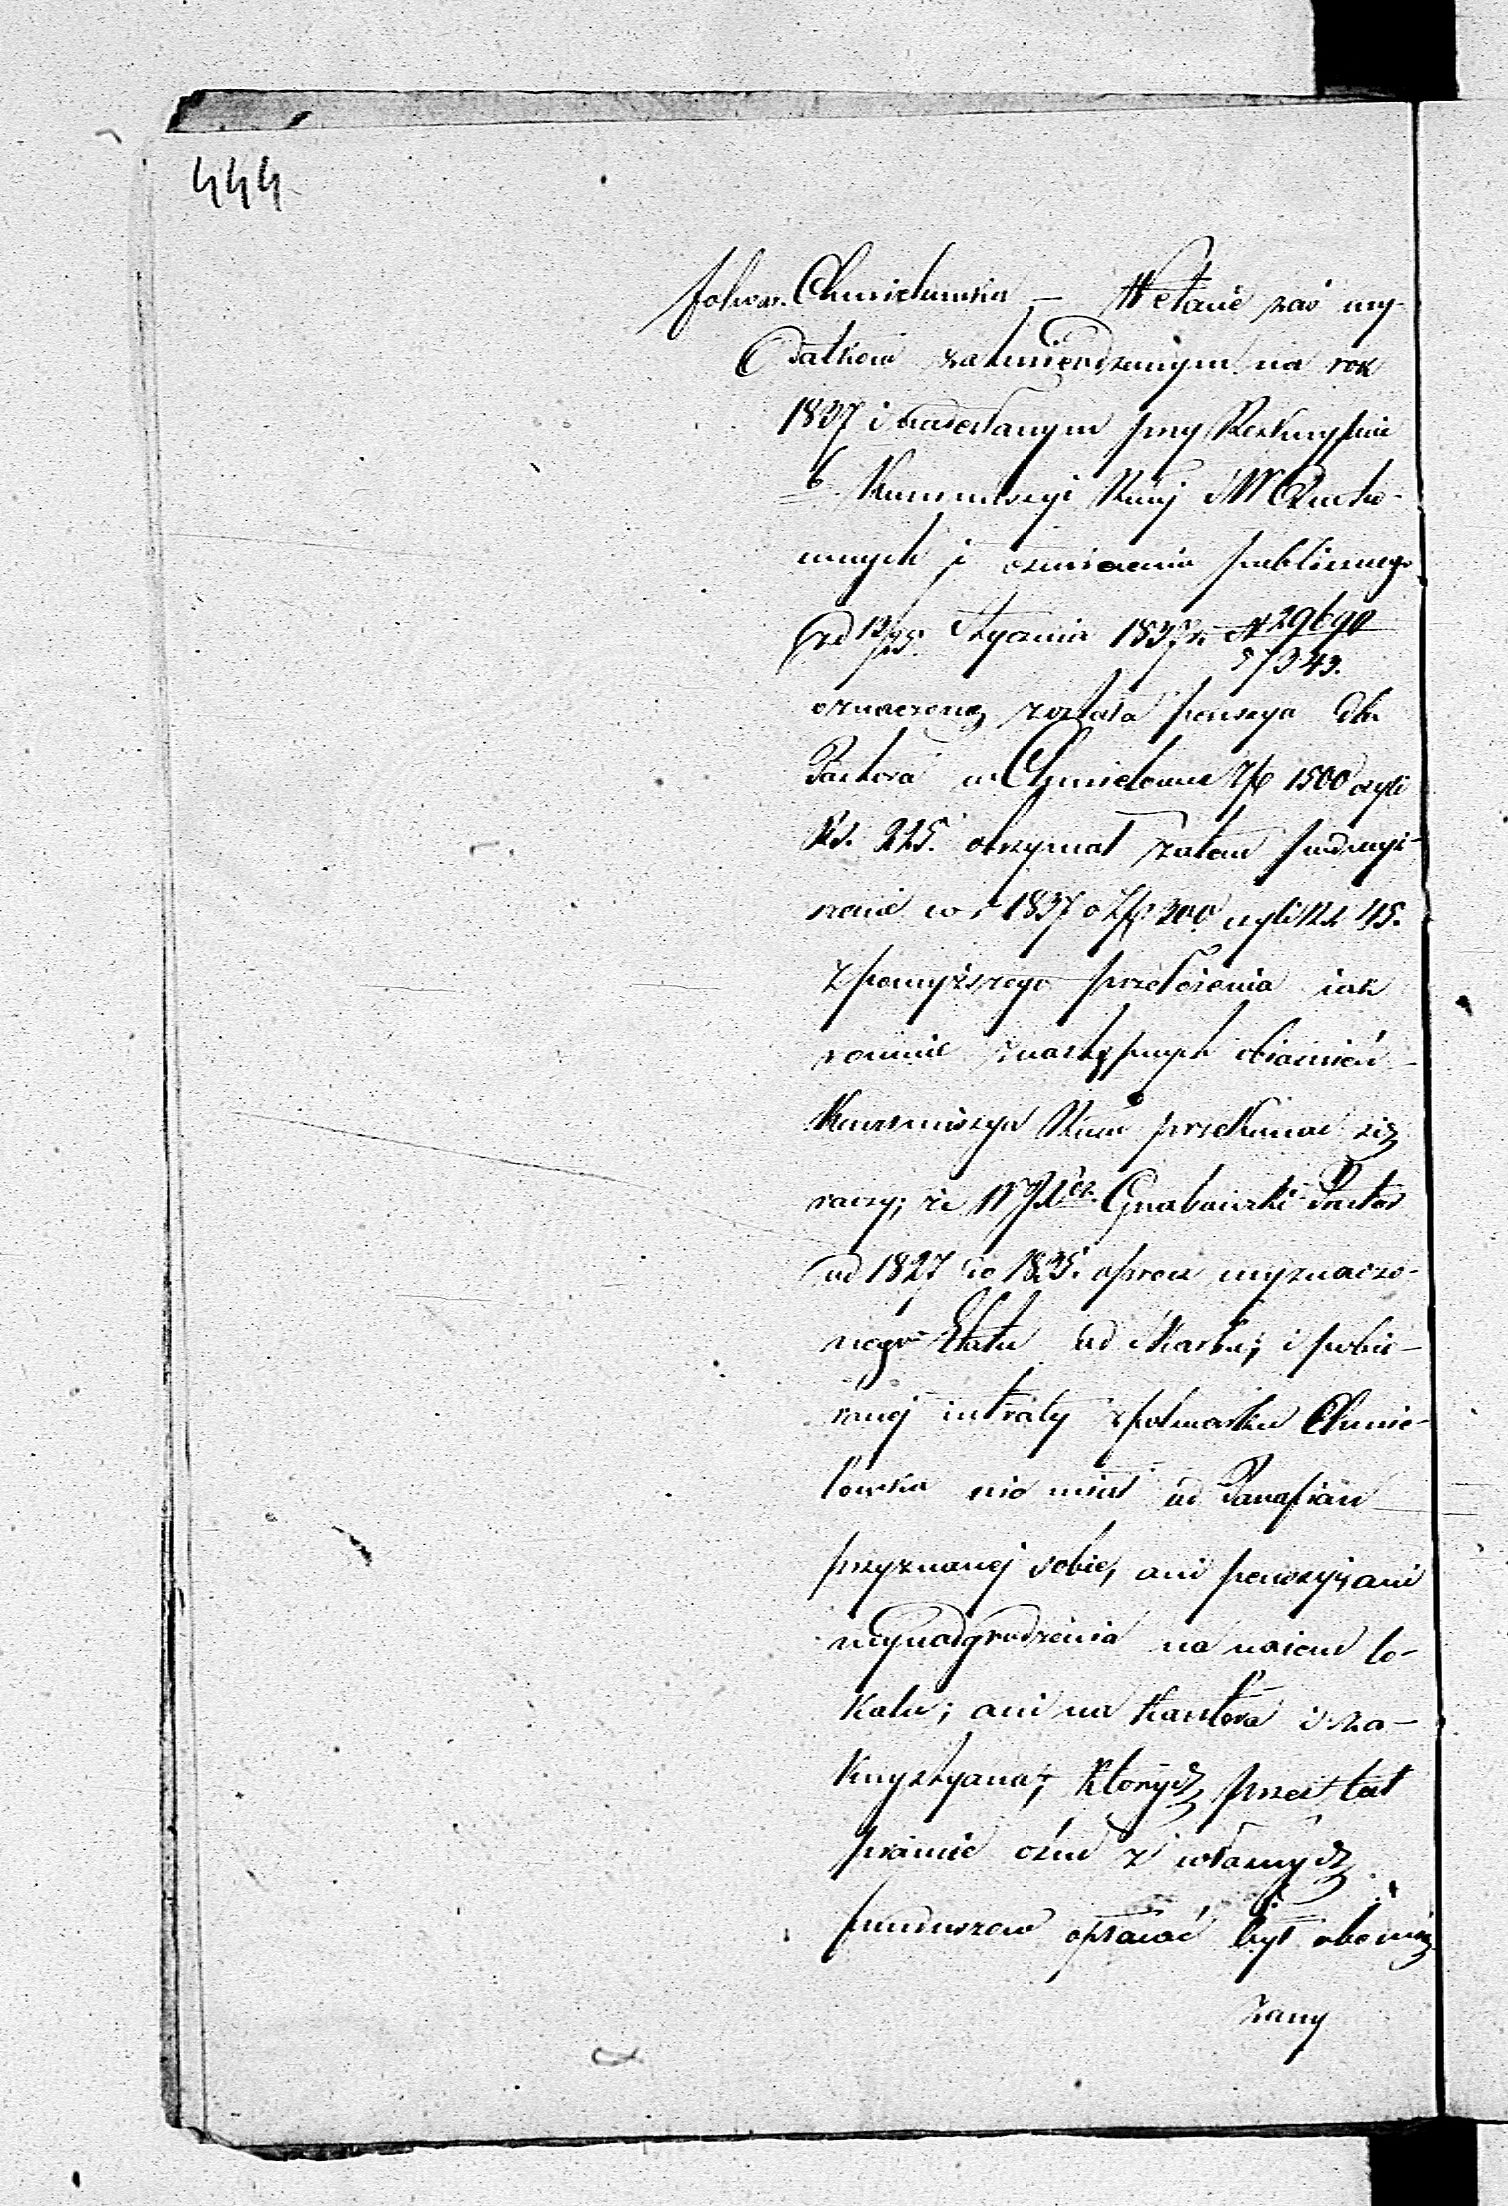 444
folwar. Chmielewska – W etacie zaś wy-
datków zatwierdzonym na rok
1837 i nadesłanym przy Reskrypcie
b. Kommissyi Rząj SW Ducho-
wnych i oświecenia publicznego
z d 13/25. Stycznia 1837 r. N 29690
57343.
oznaczoną została pensya dla
Pastora w Chmielewie Zł 1500 czyli
Rs. 225. otrzymał zatem podwyż-
szenie w r 1837 o Zł 300 czyli Rs 45.
Z powyższego przełożenia iak
rownie z następnych obiaśnień
Kommissya Rząd przekonać się
raczy; że W JX Grabowski Pastor
od 1827 do 1835. oprocz wyznaczo-
nego Etatu od Skarbu; i pobie-
ranej intraty z folwarku Chmie-
lewska nie miał od Parafian
przyznanej sobie, ani pensyi; ani
wynadgrodzenia na naiem lo-
kalu; ani na Kantora i za-
krystyana; których przez lat
prawie ośm z własnych
funduszow opłacać był obowią
zany